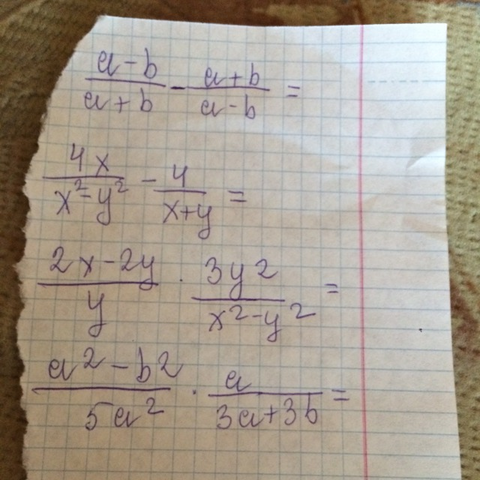 (a-b)/(a+b) - (a+b)/(a-b) =
4x/(x²-y²) - 4/(x+y) =
(2x-2y)/y · 3y²/(x²-y²) =
(a²-b²)/(5a²) · a/(3a+3b) =